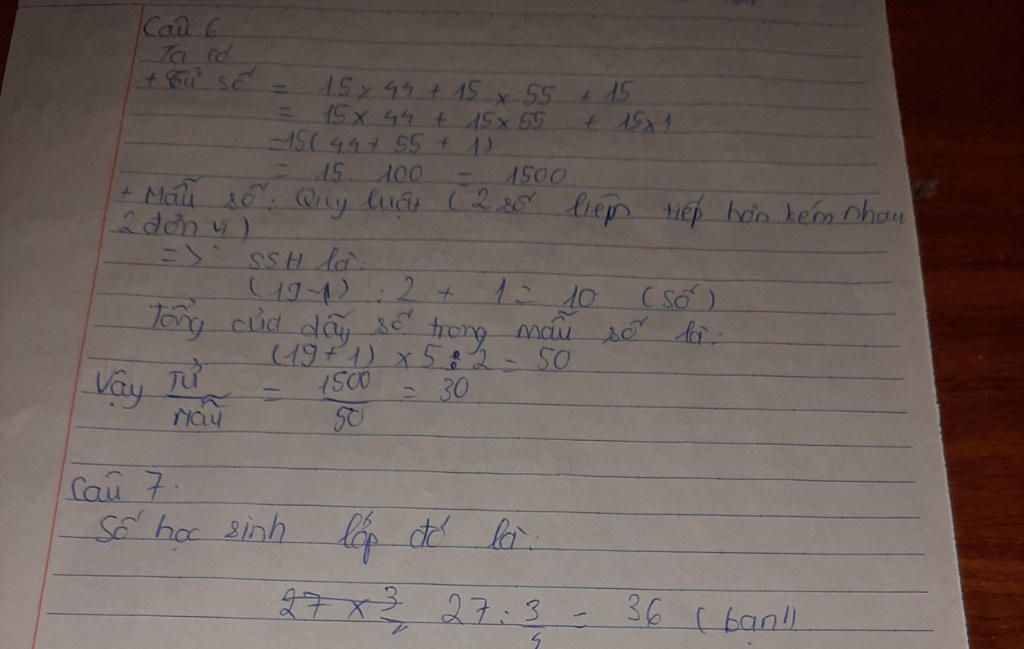 Câu 6
Ta có
+ Tử số = 15 × 44 + 15 × 55 + 15
= 15 × 44 + 15×55 + 15×1
=15(44 + 55 + 1)
= 15 . 100 = 1500
+ Mẫu số: Quy luật (2 số liên tiếp hơn kém nhau
2 đơn vị)
=> SSH là:
(19-1) : 2 + 1 = 10 (số)
Tổng của dãy số trong mẫu số là:
(19+1) × 5 : 2 = 50
Vậy Tử/Mẫu = 1500/50 = 30
Câu 7.
Số học sinh lớp đó là:
27 : 3/4 = 36 (bạn)